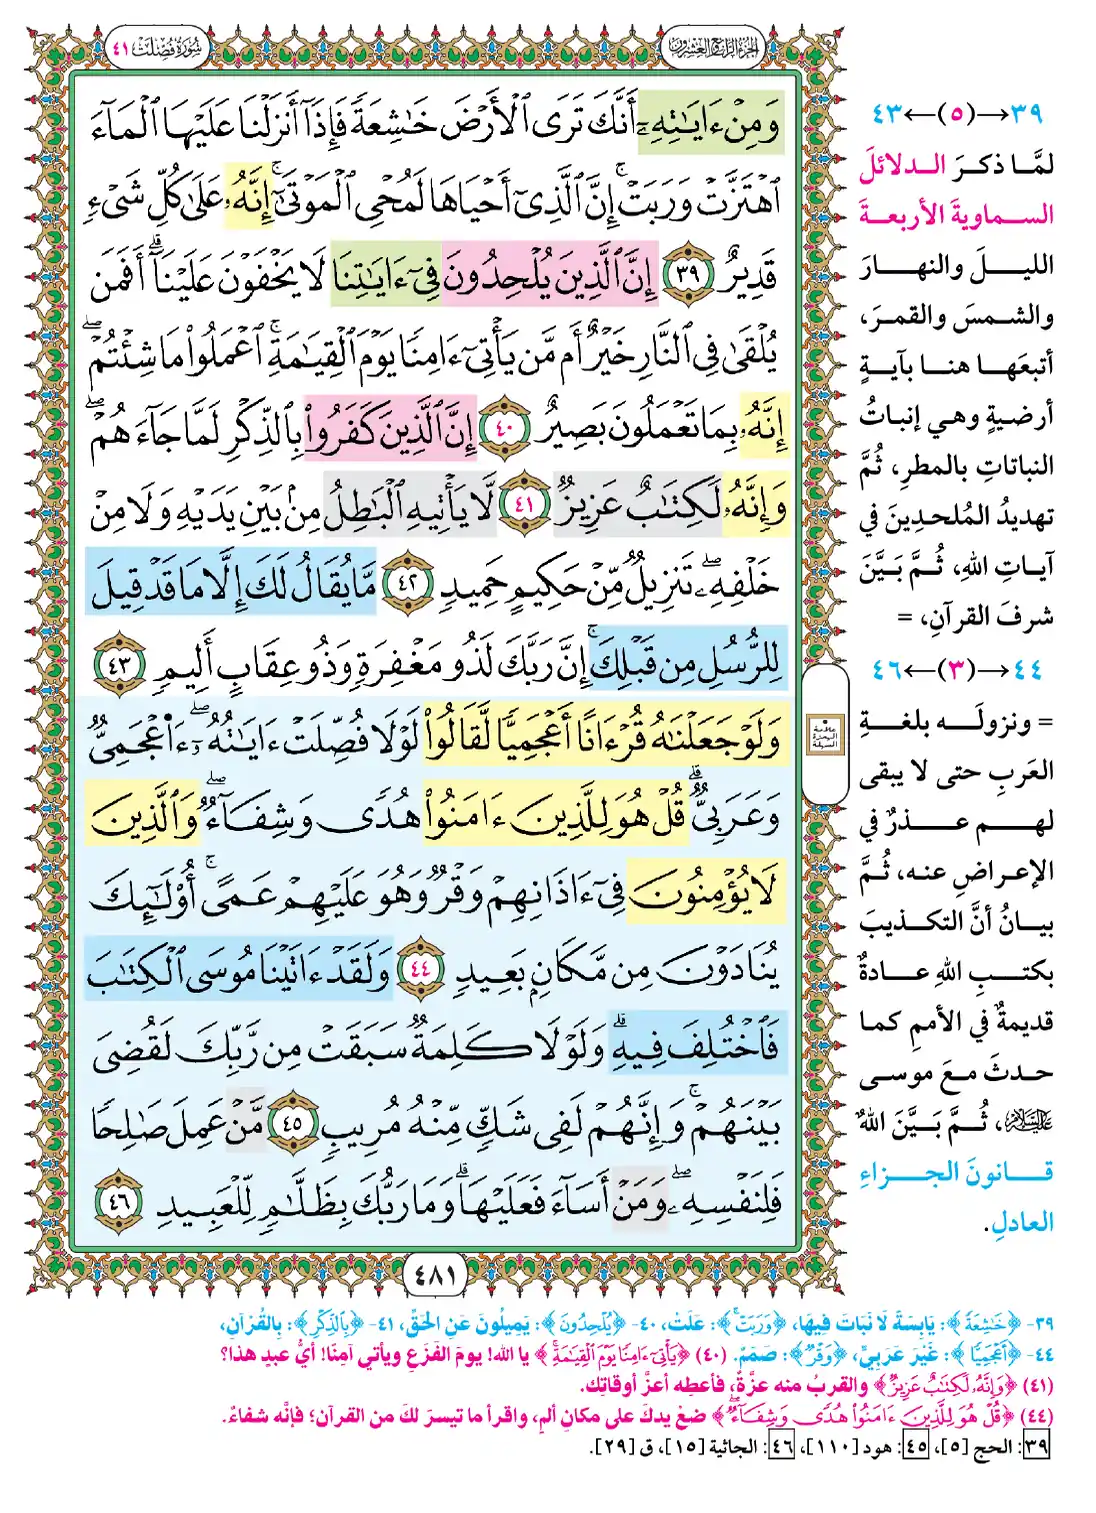 الجزء الرابع والعشرون
سورة فصلت ٤١
وَمِنْ ءَايَـٰتِهِۦٓ أَنَّكَ تَرَى ٱلْأَرْضَ خَـٰشِعَةً فَإِذَآ أَنزَلْنَا عَلَيْهَا ٱلْمَآءَ
ٱهْتَزَّتْ وَرَبَتْ ۚ إِنَّ ٱلَّذِىٓ أَحْيَاهَا لَمُحْىِ ٱلْمَوْتَىٰٓ ۚ إِنَّهُۥ عَلَىٰ كُلِّ شَىْءٍ
قَدِيرٌ ٣٩ إِنَّ ٱلَّذِينَ يُلْحِدُونَ فِىٓ ءَايَـٰتِنَا لَا يَخْفَوْنَ عَلَيْنَآ ۗ أَفَمَن
يُلْقَىٰ فِى ٱلنَّارِ خَيْرٌ أَم مَّن يَأْتِىٓ ءَامِنًا يَوْمَ ٱلْقِيَـٰمَةِ ۚ ٱعْمَلُوا۟ مَا شِئْتُمْ ۖ
إِنَّهُۥ بِمَا تَعْمَلُونَ بَصِيرٌ ٤٠ إِنَّ ٱلَّذِينَ كَفَرُوا۟ بِٱلذِّكْرِ لَمَّا جَآءَهُمْ ۖ
وَإِنَّهُۥ لَكِتَـٰبٌ عَزِيزٌ ٤١ لَّا يَأْتِيهِ ٱلْبَـٰطِلُ مِنۢ بَيْنِ يَدَيْهِ وَلَا مِنْ
خَلْفِهِۦ ۖ تَنزِيلٌ مِّنْ حَكِيمٍ حَمِيدٍ ٤٢ مَّا يُقَالُ لَكَ إِلَّا مَا قَدْ قِيلَ
لِلرُّسُلِ مِن قَبْلِكَ ۚ إِنَّ رَبَّكَ لَذُو مَغْفِرَةٍ وَذُو عِقَابٍ أَلِيمٍ ٤٣
وَلَوْ جَعَلْنَـٰهُ قُرْءَانًا أَعْجَمِيًّا لَّقَالُوا۟ لَوْلَا فُصِّلَتْ ءَايَـٰتُهُۥٓ ۖ ءَا۬عْجَمِىٌّ
وَعَرَبِىٌّ ۗ قُلْ هُوَ لِلَّذِينَ ءَامَنُوا۟ هُدًى وَشِفَآءٌ ۖ وَٱلَّذِينَ
لَا يُؤْمِنُونَ فِىٓ ءَاذَانِهِمْ وَقْرٌ وَهُوَ عَلَيْهِمْ عَمًى ۚ أُو۟لَـٰٓئِكَ
يُنَادَوْنَ مِن مَّكَانٍۭ بَعِيدٍ ٤٤ وَلَقَدْ ءَاتَيْنَا مُوسَى ٱلْكِتَـٰبَ
فَٱخْتُلِفَ فِيهِ ۗ وَلَوْلَا كَلِمَةٌ سَبَقَتْ مِن رَّبِّكَ لَقُضِىَ
بَيْنَهُمْ ۚ وَإِنَّهُمْ لَفِى شَكٍّ مِّنْهُ مُرِيبٍ ٤٥ مَّنْ عَمِلَ صَـٰلِحًا
فَلِنَفْسِهِۦ ۖ وَمَنْ أَسَآءَ فَعَلَيْهَا ۗ وَمَا رَبُّكَ بِظَلَّـٰمٍ لِّلْعَبِيدِ ٤٦
٤٨١
٣٩→(٥)←٤٣
لمَّا ذكرَ الدلائلَ
السماويةَ الأربعةَ
الليلَ والنهارَ
والشمسَ والقمرَ،
أتبعَها هنا بآيةٍ
أرضيةٍ وهي إنباتُ
النباتاتِ بالمطرِ، ثُمَّ
تهديدُ المُلحدِينَ في
آياتِ اللهِ، ثُمَّ بَيَّنَ
شرفَ القرآنِ، =
٤٤→(٣)←٤٦
= ونزولَه بلغةِ
العَربِ حتى لا يبقى
لهم عذرٌ في
الإعراضِ عنه، ثُمَّ
بيانُ أنَّ التكذيبَ
بكتبِ اللهِ عادةٌ
قديمةٌ في الأممِ كما
حدثَ معَ موسى
عليه السلام، ثُمَّ بَيَّنَ اللهُ
قانونَ الجزاءِ
العادلِ.
علامة الوحدة السبيلة
٣٩- ﴿خَـٰشِعَةً﴾: يَابِسَةً لَا نَبَاتَ فِيهَا، ﴿وَرَبَتْ ۚ﴾: عَلَتْ، ٤٠- ﴿يُلْحِدُونَ﴾: يَمِيلُونَ عَنِ الحَقِّ، ٤١- ﴿بِٱلذِّكْرِ﴾: بِالقُرْآنِ،
٤٤- ﴿أَعْجَمِيًّا﴾: غَيْرَ عَرَبِيٍّ، ﴿وَقْرٌ﴾: صَمَمٌ. (٤٠) ﴿يَأْتِىٓ ءَامِنًا يَوْمَ ٱلْقِيَـٰمَةِ ۚ﴾ يا الله! يومَ الفَزَعِ ويأتي آمِنًا! أيُّ عبدٍ هذا؟
(٤١) ﴿وَإِنَّهُۥ لَكِتَـٰبٌ عَزِيزٌ﴾ والقربُ منه عزَّةٌ، فأعطه أعزَّ أوقاتِك.
(٤٤) ﴿قُلْ هُوَ لِلَّذِينَ ءَامَنُوا۟ هُدًى وَشِفَآءٌ ۖ﴾ ضعْ يدكَ على مكانِ ألمٍ، واقرأ ما تيسرَ لكَ من القرآنِ؛ فإنَّه شفاءٌ.
٣٩: الحج [٥]، ٤٥: هود [١١٠]، ٤٦: الجاثية [١٥]، ق [٢٩].